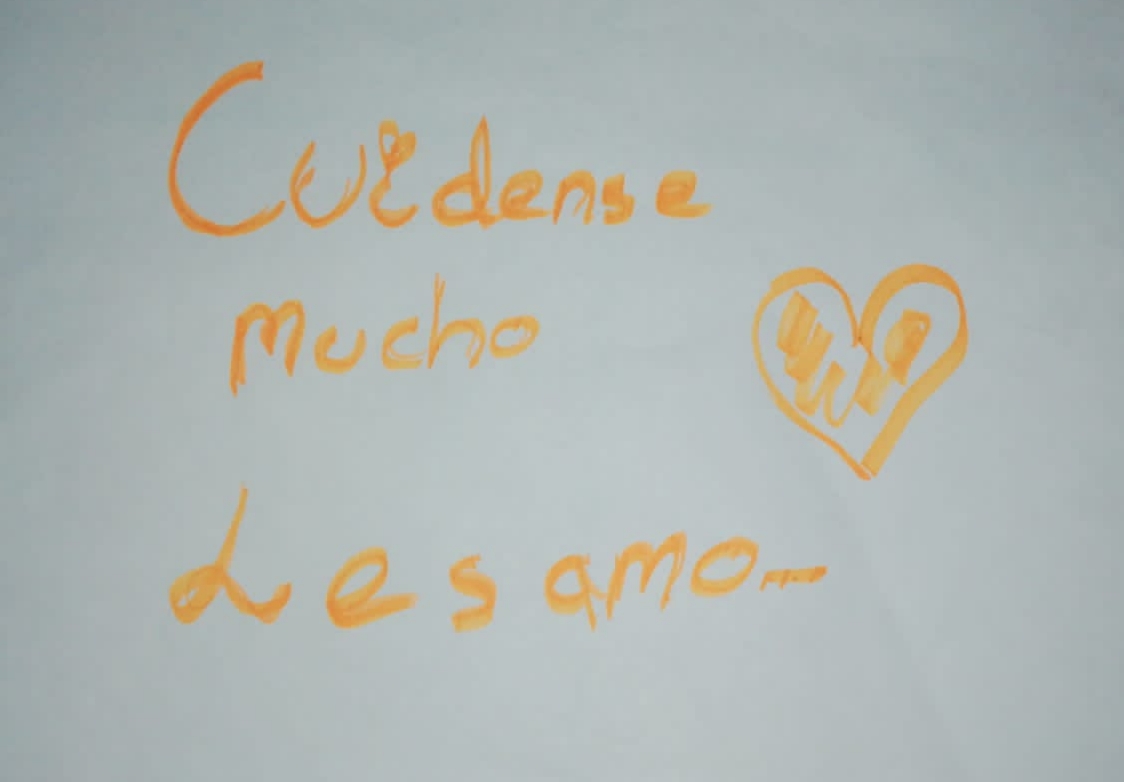 Cuidense
mucho
Les amo-